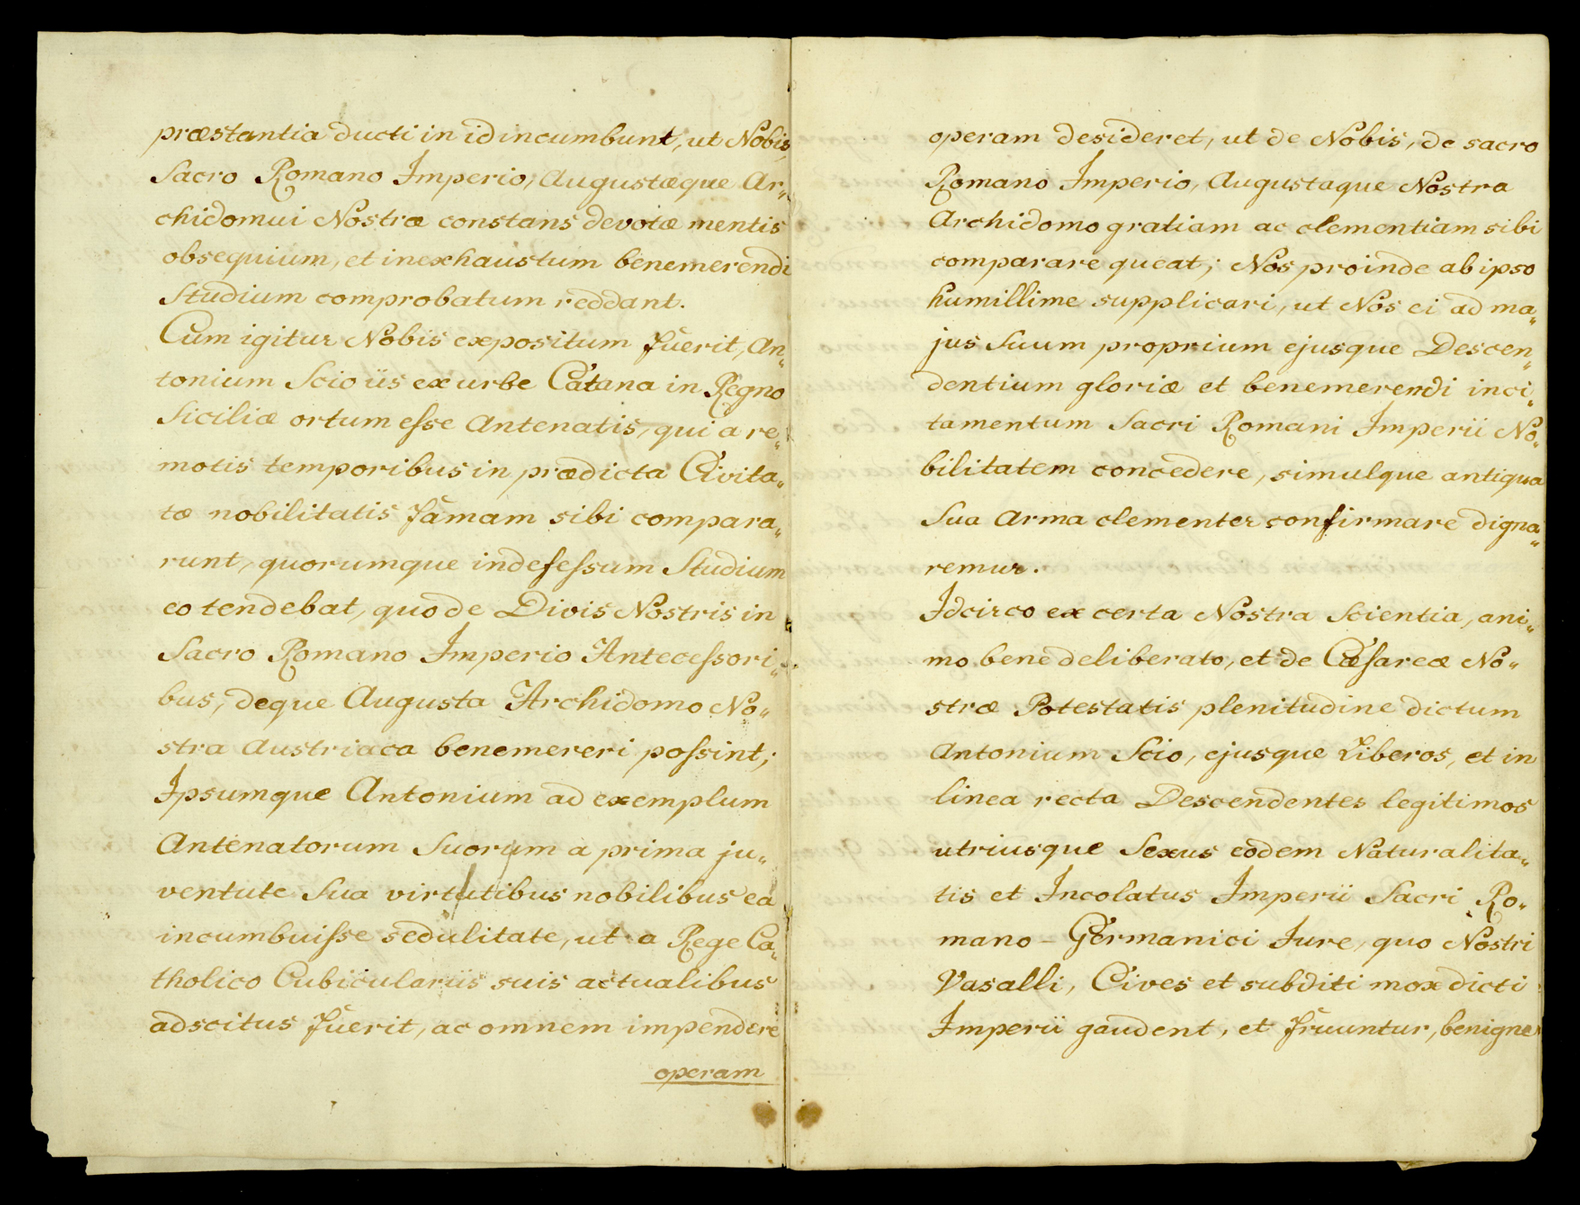 præstantia ducti in id incumbunt, ut Nobis,
Sacro Romano Imperio, Augustæque Ar„
chidomui Nostræ constans devotæ mentis
obsequium, et inexhaustum benemerendi
Studium comprobatum reddant.
Cum igitur Nobis expositum fuerit, An„
tonium Scio iis ex urbe Catana in Regno
Siciliæ ortum esse Antenatis, qui a re„
motis temporibus in prædicta Civita„
te nobilitatis famam sibi compara„
runt, quorumque indefessum Studium
eo tendebat, quo de Divis Nostris in
Sacro Romano Imperio Antecessori„
bus, deque Augusta Archidomo No„
stra Austriaca benemereri possint;
Ipsumque Antonium ad exemplum
Antenatorum Suorum a prima ju„
ventute Sua virtutibus nobilibus ea
incumbuisse sedulitate, ut a Rege Ca„
tholico Cubiculariis suis actualibus
adscitus fuerit, ac omnem impendere
operam
operam desideret, ut de Nobis, de sacro
Romano Imperio, Augustaque Nostra
Archidomo gratiam ac clementiam sibi
comparare queat; Nos proinde ab ipso
humillime supplicari, ut Nos ei ad ma„
jus Suum proprium ejusque Descen„
dentium gloriæ et benemerendi inci„
tamentum Sacri Romani Imperii No„
bilitatem concedere, simulque antiqua
Sua Arma clementer confirmare digna„
remur.
Idcirco ex certa Nostra Scientia, ani„
mo bene deliberato, et de Cæsareæ No„
stræ Potestatis plenitudine dictum
Antonium Scio, ejusque Liberos, et in
linea recta Descendentes legitimos
utriusque Sexus eodem Naturalita„
tis et Incolatus Imperii Sacri Ro„
mano-Germanici Jure, quo Nostri
Vasalli, Cives et subditi mox dicti
Imperii gaudent, et fruuntur, benigne